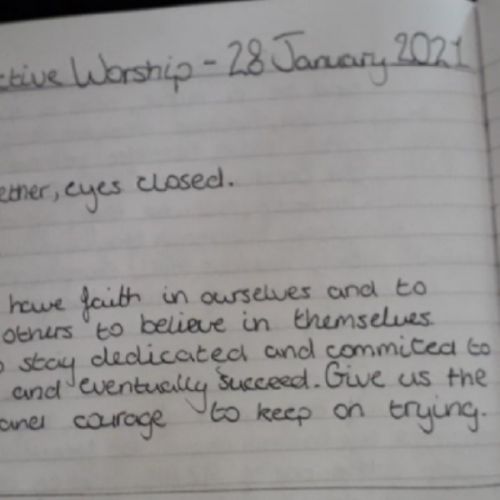 ctive Worship - 28 January 2021
ether, eyes closed.
have faith in ourselves and to
others to believe in themselves
o stay dedicated and commited to
and eventually succeed. Give us the
and courage to keep on trying.